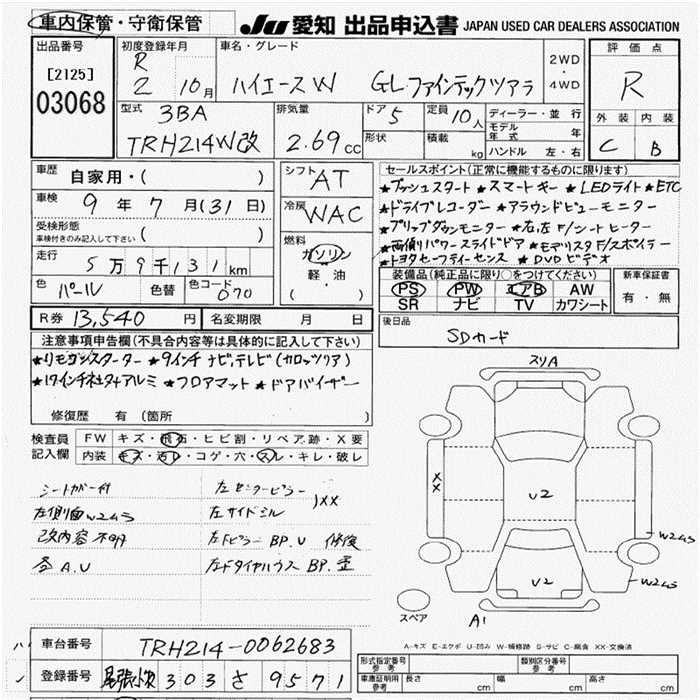 車内保管・守衛保管
JU 愛知 出品申込書 JAPAN USED CAR DEALERS ASSOCIATION
出品番号
[2125]
03068
初度登録年月
R
2 10月
車名・グレード
ハイエースW GL ファインテックツアラ
2WD
・
4WD
評価点
R
外装 内装
C B
型式 3BA
TRH214W改
排気量
2.69 CC
ドア 5
形状
定員 10人
積載 kg
ディーラー・並行
モデル年式 年
ハンドル 左・右
車歴 自家用・( )
車検 9年 7月(31日)
受検形態
車検付きのみ記入して下さい ( )
走行 5万9千131km
色 パール 色替 色コード 070
シフト AT
冷房 WAC
燃料
ガソリン
軽・油
( )
セールスポイント(正常に機能するものに限ります)
★プッシュスタート ★スマートキー ★LEDライト ★ETC
★ドライブレコーダー ★アラウンドビューモニター
★フリップダウンモニター ★右、左 F/シートヒーター
★両側パワースライドドア ★モデリスタ F/スポイラー
★トヨタセーフティーセンス ★DVDビデオ
装備品(純正品に限り○をつけてください)
PS PW エアB AW
SR ナビ TV カワシート
新車保証書
有・無
R券 13,540円 名変期限 月 日
後日品
SDカード
注意事項申告欄(不具合内容等は具体的に記入して下さい)
★リモコンスターター ★9インチ ナビ、テレビ(カロッツリア)
★17インチ社外アルミ ★フロアマット ★ドアバイザー
修復歴 有 (箇所 )
検査員
記入欄
FW キズ・飛石・ヒビ割・リペア跡・X要
内装 キズ・汚レ・コゲ・穴・スレ・キレ・破レ
シートカバー付
左側面W2 45
改内容不明
各A.U
左センターピラー XX
左サイドシル
左Fピラー BP.U 修復
左Fタイヤハウス BP.歪
スリA
XX
U2
U2
W2 45
W2 45
A1
スペア
A-キズ E-エクボ U-凹み W-補修跡 S-サビ C-腐食 XX-交換済
車台番号 TRH214-0062683
登録番号 尾張小牧 303 さ 9571
形式指定番号
参考
類別区分番号
参考
車庫証明用
参考
長さ cm 幅 cm 高さ cm